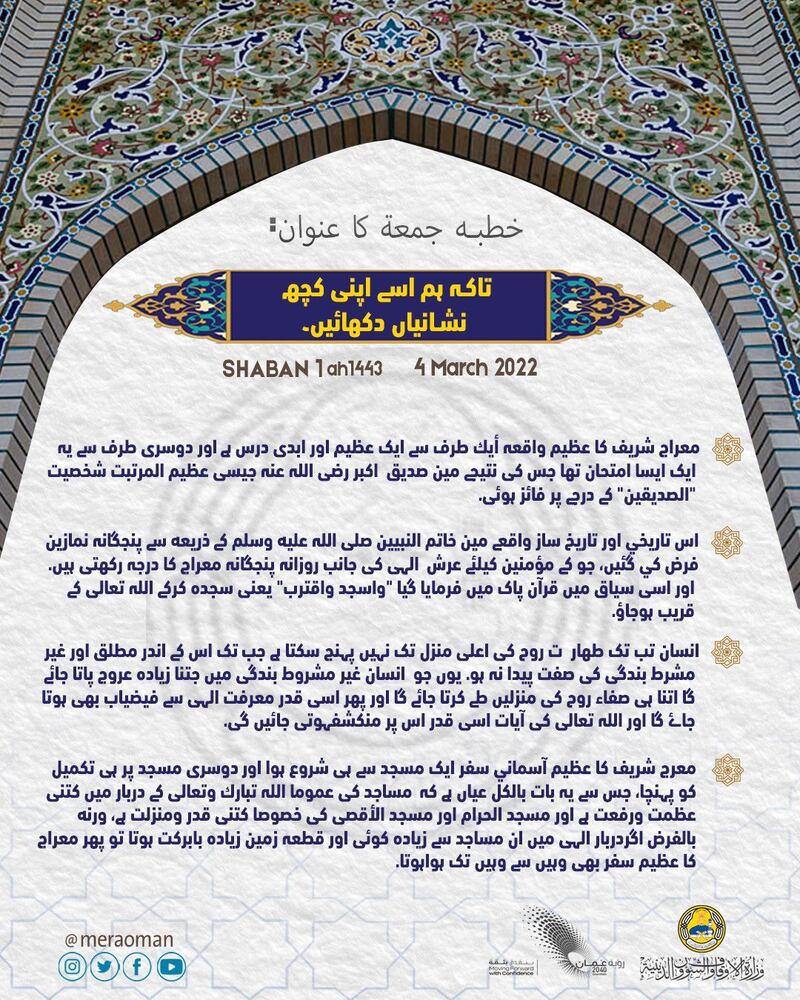 خطبہ جمعة کا عنوان:
تاکہ ہم اسے اپنی کچھ
نشانیاں دکھائیں۔
SHABAN 1 ah1443 4 March 2022
معراج شریف کا عظیم واقعہ أیك طرف سے ایک عظیم اور ابدی درس ہے اور دوسری طرف سے یہ
ایک ایسا امتحان تھا جس کی نتیجے مین صدیق اکبر رضی اللہ عنہ جیسی عظیم المرتبت شخصیت
"الصدیقین" کے درجے پر فائز ہوئی.
اس تاریخي اور تاریخ ساز واقعے مین خاتم النبیین صلی اللہ علیہ وسلم کے ذریعہ سے پنجگانہ نمازین
فرض کي گئیں، جو کے مؤمنین کیلئے عرش الہی کی جانب روزانہ پنجگانہ معراج کا درجہ رکھتی ہیں.
اور اسی سیاق میں قرآن پاک میں فرمایا گیا "واسجد واقترب" یعنی سجدہ کرکے اللہ تعالی کے
قریب ہوجاؤ.
انسان تب تک طہار ت روح کی اعلی منزل تک نہیں پہنچ سکتا ہے جب تک اس کے اندر مطلق اور غیر
مشرط بندگی کی صفت پیدا نہ ہو. یوں جو انسان غیر مشروط بندگی میں جتنا زیادہ عروج پاتا جائے
گا اتنا ہی صفاء روح کی منزلیں طے کرتا جائے گا اور پھر اسی قدر معرفت الہی سے فیضیاب بھی ہوتا
جاۓ گا اور اللہ تعالی کی آیات اسی قدر اس پر منکشفہوتی جائیں گی.
معرج شریف کا عظیم آسماني سفر ایک مسجد سے ہی شروع ہوا اور دوسری مسجد پر ہی تکمیل
کو پہنچا، جس سے یہ بات بالکل عیاں ہے کہ مساجد کی عموما اللہ تبارك وتعالی کے دربار میں کتنی
عظمت ورفعت ہے اور مسجد الحرام اور مسجد الأقصی کی خصوصا کتنی قدر ومنزلت ہے، ورنہ
بالفرض اگردربار الہی میں ان مساجد سے زیادہ کوئی اور قطعہ زمین زیادہ بابرکت ہوتا تو پھر معراج
کا عظیم سفر بھی وہیں سے وہیں تک ہواہوتا.
@meraoman
نتقدم بثقة
Moving Forward
with Confidence
رؤية عُمان
2040
وزارة الأوقاف والشؤون الدينية